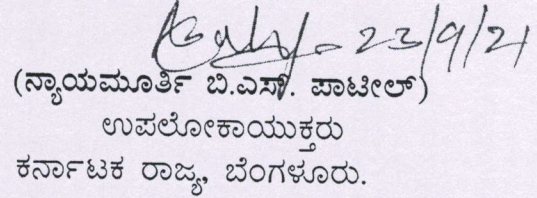 23/9/21
(ನ್ಯಾಯಮೂರ್ತಿ ಬಿ.ಎಸ್. ಪಾಟೀಲ್)
ಉಪಲೋಕಾಯುಕ್ತರು
ಕರ್ನಾಟಕ ರಾಜ್ಯ, ಬೆಂಗಳೂರು.